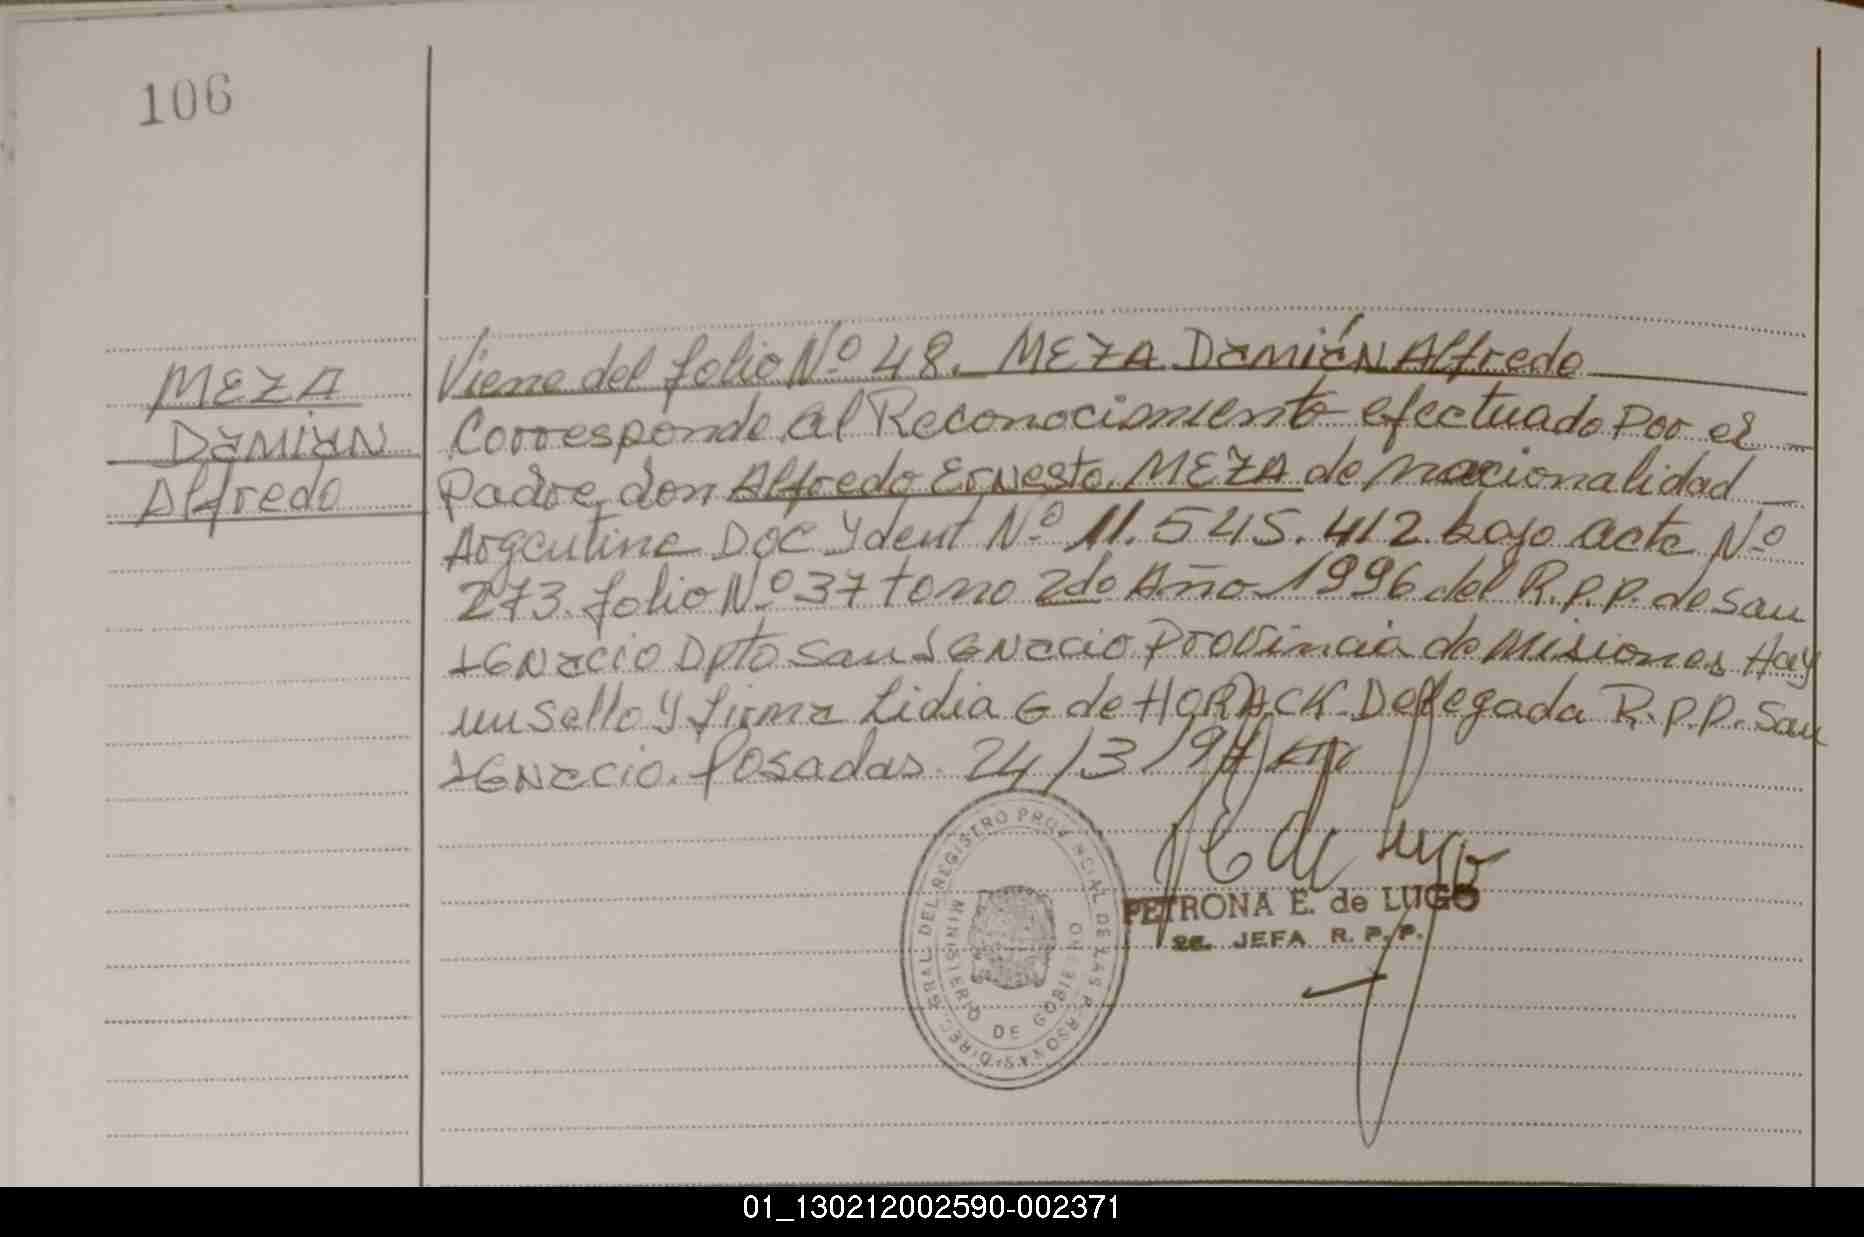 106
MEZA
Damian
Alfredo
Viene del folio Nº 48. MEZA Damián Alfredo
Corresponde al Reconocimiento efectuado por el
Padre don Alfredo Ernesto MEZA de nacionalidad
Argentina Doc Ydent Nº 11.545.412 bajo acta Nº
273 folio Nº 37 tomo 2do Año 1996 del R.P.P. de San
IGNacio Dpto San IGNacio Provincia de Misiones Hay
un Sello y firma Lidia G de HORACK Delegada R.P.P. San
IGNacio. Posadas. 24/3/97
DIREC. GRAL. DEL REGISTRO PROVINCIAL DE LAS PERSONAS
MINISTERIO DE GOBIERNO
PETRONA E. de LUGO
2a. JEFA R. P. P.
01_130212002590-002371